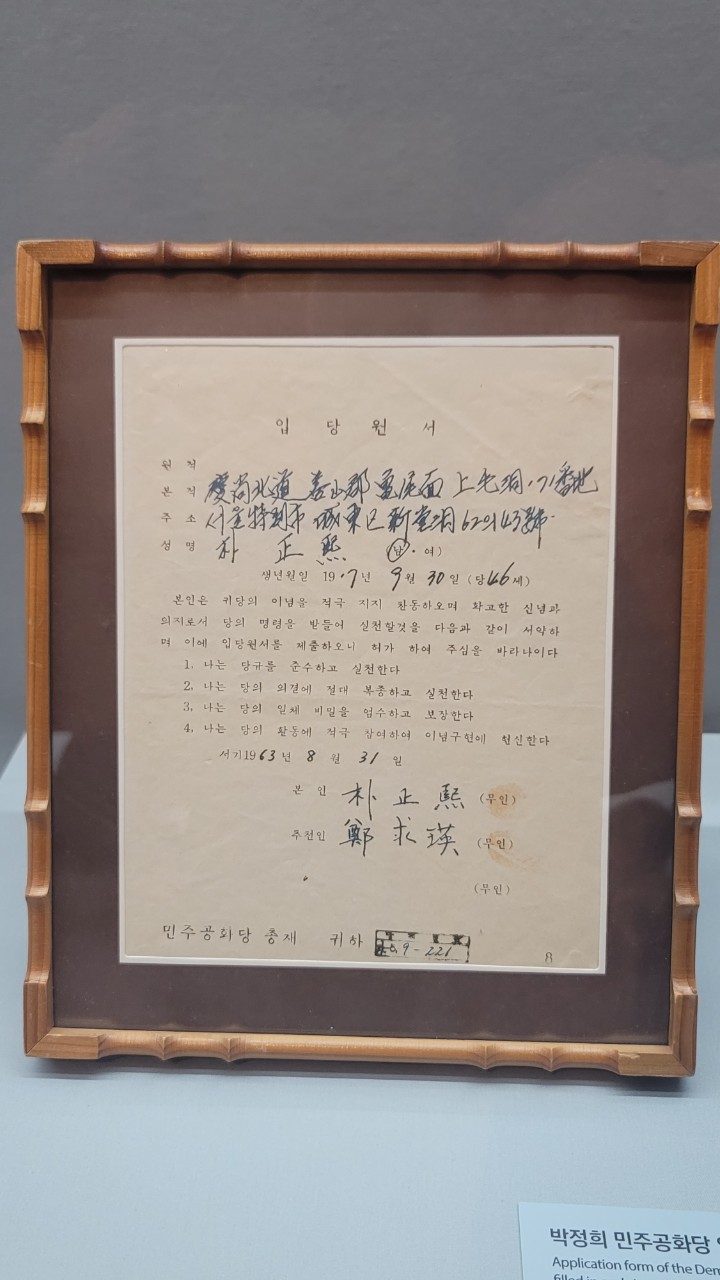 입 당 원 서
원 적
본 적 慶尚北道 善山郡 龜尾面 上毛洞 71番地
주 소 서울特別市 城東区 新堂洞 62의 43號
성 명 朴 正 熙 (남·여)
생년월일 19 17년 9월 30일 (당 46세)
본인은 귀당의 이념을 적극 지지 찬동하오며 확고한 신념과
의지로서 당의 명령을 받들어 실천할것을 다음과 같이 서약하
며 이에 입당원서를 제출하오니 허가 하여 주심을 바라나이다
1, 나는 당규를 준수하고 실천한다
2, 나는 당의 의결에 절대 복종하고 실천한다
3, 나는 당의 일체 비밀을 엄수하고 보장한다
4, 나는 당의 활동에 적극 참여하여 이념구현에 헌신한다
서기19 63년 8 월 31 일
본 인 朴 正 熙 (무인)
추천인 鄭 求 瑛 (무인)
(무인)
민주공화당 총재 귀하
9-221
8
박정희 민주공화당
Application form of the Dem